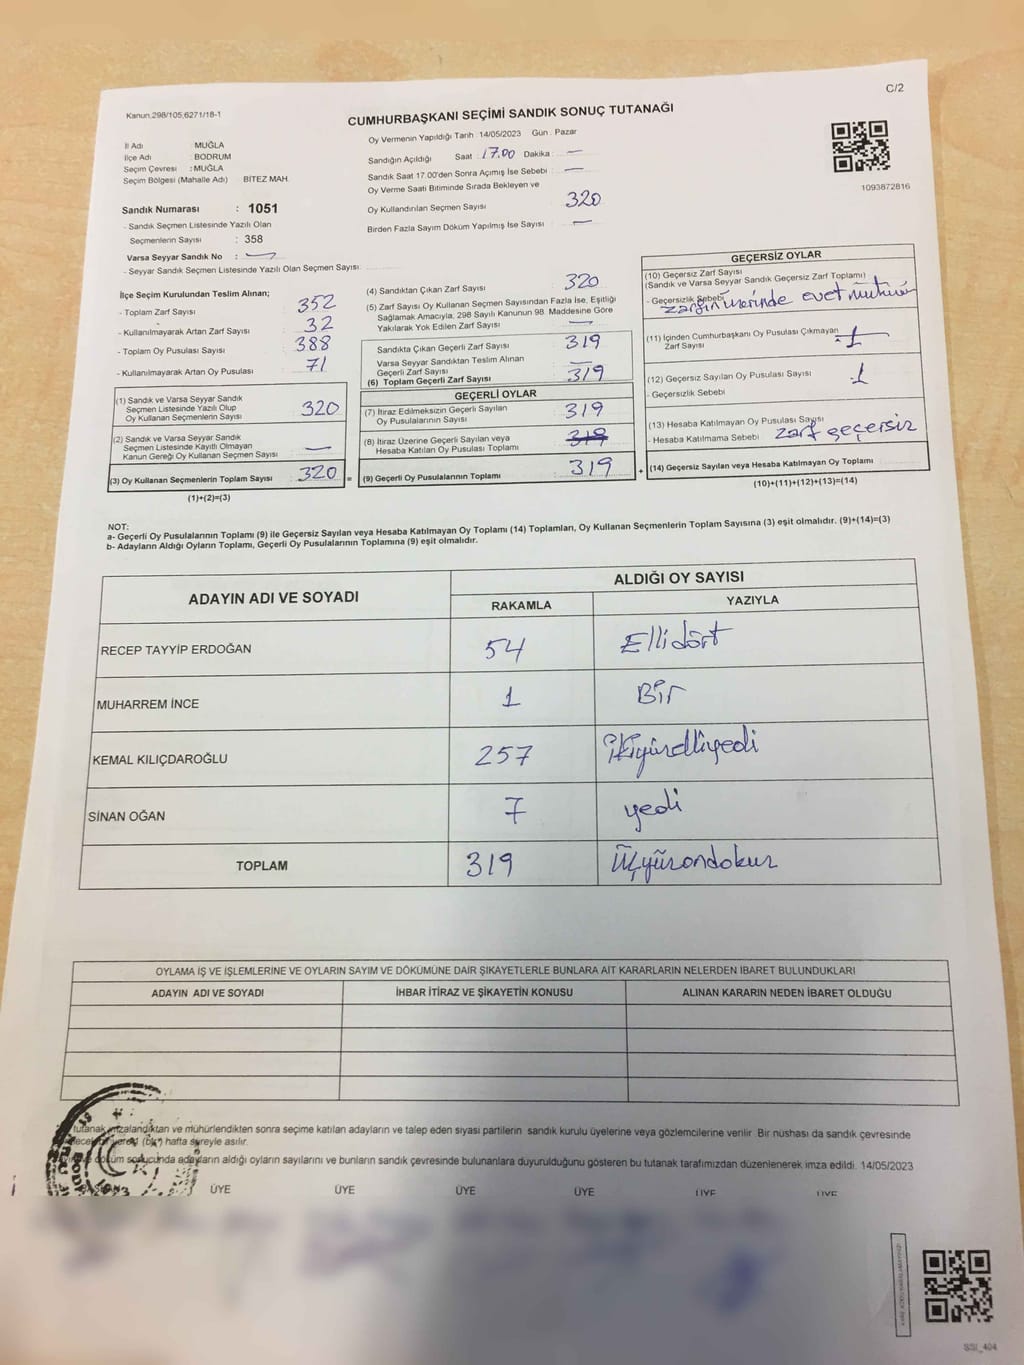 C/2
Kanun,298/105;6271/18-1
CUMHURBAŞKANI SEÇİMİ SANDIK SONUÇ TUTANAĞI
İl Adı : MUĞLA
İlçe Adı : BODRUM
Seçim Çevresi : MUĞLA
Seçim Bölgesi (Mahalle Adı) BİTEZ MAH.
Sandık Numarası : 1051
- Sandık Seçmen Listesinde Yazılı Olan
Seçmenlerin Sayısı : 358
Varsa Seyyar Sandık No : —
- Seyyar Sandık Seçmen Listesinde Yazılı Olan Seçmen Sayısı:
Oy Vermenin Yapıldığı Tarih : 14/05/2023 Gün : Pazar
Sandığın Açıldığı Saat : 17.00 Dakika : —
Sandık Saat 17.00'den Sonra Açımış İse Sebebi : —
Oy Verme Saati Bitiminde Sırada Bekleyen ve
Oy Kullandırılan Seçmen Sayısı 320
Birden Fazla Sayım Döküm Yapılmış İse Sayısı : —
1093872816
İlçe Seçim Kurulundan Teslim Alınan;
- Toplam Zarf Sayısı : 352
- Kullanılmayarak Artan Zarf Sayısı : 32
- Toplam Oy Pusulası Sayısı : 388
- Kullanılmayarak Artan Oy Pusulası : 71
(1) Sandık ve Varsa Seyyar Sandık
Seçmen Listesinde Yazılı Olup
Oy Kullanan Seçmenlerin Sayısı : 320
(2) Sandık ve Varsa Seyyar Sandık
Seçmen Listesinde Kayıtlı Olmayan
Kanun Gereği Oy Kullanan Seçmen Sayısı : —
(3) Oy Kullanan Seçmenlerin Toplam Sayısı : 320 =
(1)+(2)=(3)
(4) Sandıktan Çıkan Zarf Sayısı : 320
(5) Zarf Sayısı Oy Kullanan Seçmen Sayısından Fazla İse, Eşitliği
Sağlamak Amacıyla, 298 Sayılı Kanunun 98. Maddesine Göre
Yakılarak Yok Edilen Zarf Sayısı : —
Sandıkta Çıkan Geçerli Zarf Sayısı : 319
Varsa Seyyar Sandıktan Teslim Alınan
Geçerli Zarf Sayısı : —
(6) Toplam Geçerli Zarf Sayısı : 319
GEÇERLİ OYLAR
(7) İtiraz Edilmeksizin Geçerli Sayılan
Oy Pusulalarının Sayısı : 319
(8) İtiraz Üzerine Geçerli Sayılan veya
Hesaba Katılan Oy Pusulası Toplamı : 319
(9) Geçerli Oy Pusulalarının Toplamı : 319 +
GEÇERSİZ OYLAR
(10) Geçersiz Zarf Sayısı
(Sandık ve Varsa Seyyar Sandık Geçersiz Zarf Toplamı)
- Geçersizlik Sebebi
zarfın üzerinde evet mühürü
(11) İçinden Cumhurbaşkanı Oy Pusulası Çıkmayan
Zarf Sayısı : 1
(12) Geçersiz Sayılan Oy Pusulası Sayısı : 1
- Geçersizlik Sebebi
(13) Hesaba Katılmayan Oy Pusulası Sayısı
- Hesaba Katılmama Sebebi : zarf geçersiz
(14) Geçersiz Sayılan veya Hesaba Katılmayan Oy Toplamı :
(10)+(11)+(12)+(13)=(14)
NOT:
a- Geçerli Oy Pusulalarının Toplamı (9) ile Geçersiz Sayılan veya Hesaba Katılmayan Oy Toplamı (14) Toplamları, Oy Kullanan Seçmenlerin Toplam Sayısına (3) eşit olmalıdır. (9)+(14)=(3)
b- Adayların Aldığı Oyların Toplamı, Geçerli Oy Pusulalarının Toplamına (9) eşit olmalıdır.
ADAYIN ADI VE SOYADI ALDIĞI OY SAYISI
RAKAMLA YAZIYLA
RECEP TAYYİP ERDOĞAN 54 Ellidört
MUHARREM İNCE 1 Bir
KEMAL KILIÇDAROĞLU 257 İkiyüzelliyedi
SİNAN OĞAN 7 yedi
TOPLAM 319 Üçyüzondokuz
OYLAMA İŞ VE İŞLEMLERİNE VE OYLARIN SAYIM VE DÖKÜMÜNE DAİR ŞİKAYETLERLE BUNLARA AİT KARARLARIN NELERDEN İBARET BULUNDUKLARI
ADAYIN ADI VE SOYADI İHBAR İTİRAZ VE ŞİKAYETİN KONUSU ALINAN KARARIN NEDEN İBARET OLDUĞU
tutanak imzalandıktan ve mühürlendikten sonra seçime katılan adayların ve talep eden siyasi partilerin sandık kurulu üyelerine veya gözlemcilerine verilir. Bir nüshası da sandık çevresinde
(bir) hafta süreyle asılır.
döküm sonucunda adayların aldığı oyların sayılarını ve bunların sandık çevresinde bulunanlara duyurulduğunu gösteren bu tutanak tarafımızdan düzenlenerek imza edildi. 14/05/2023
ÜYE ÜYE ÜYE ÜYE ÜYE ÜYE
SSI_404